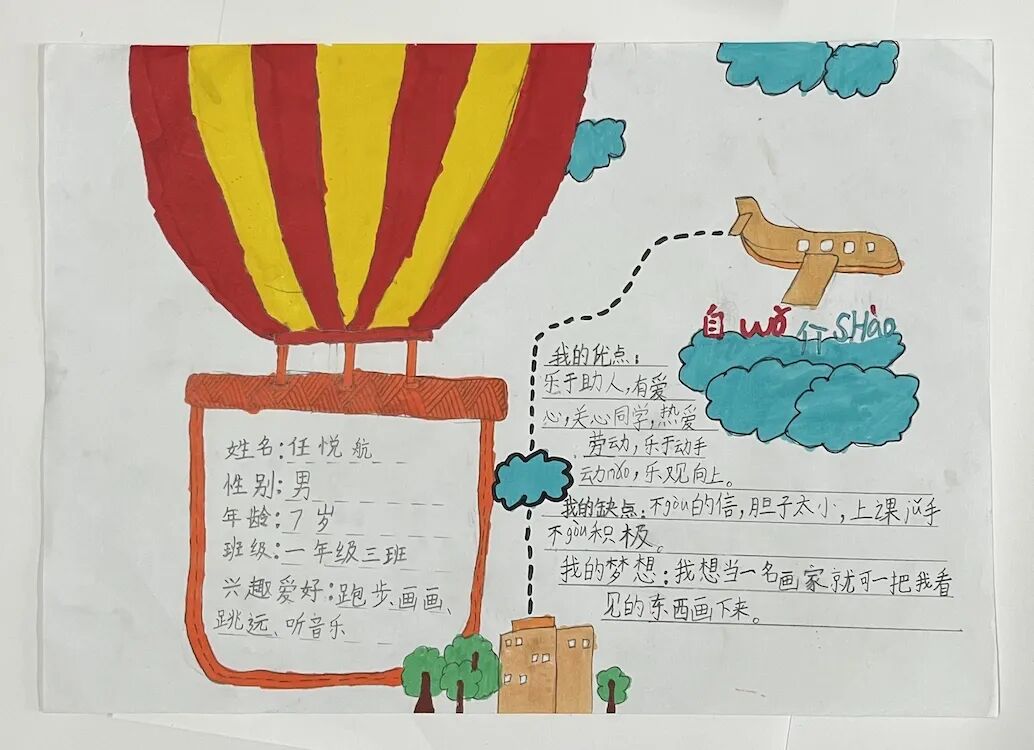 自wǒ介SHào
姓名:任悦航
性别:男
年龄:7岁
班级:一年级三班
兴趣爱好:跑步、画画、
跳远、听音乐
我的优点:
乐于助人,有爱
心,关心同学,热爱
劳动,乐于动手
动nǎo,乐观向上。
我的缺点:不gòu的信,胆子太小,上课jǔ手
不gòu积极。
我的梦想:我想当一名画家就可一把我看
见的东西画下来。